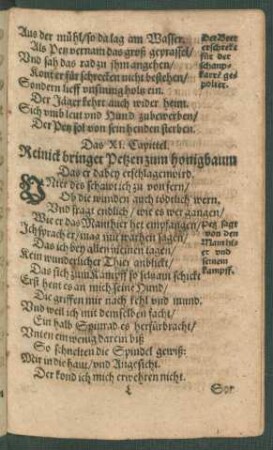 Aus der mühl/so da lag am Wasser.
Als Petz vernam das groß geprassel/
Und sah das rad zu jhm angehen/
Kont er für schrecken nicht bestehen/
Sondern lieff unsinnig holn ein.
Der Jäger kehrt auch wider heim.
Sich umb leut und Hund zubewerben/
Der Petz sol von sein henden sterben.
Der Beer
erschrekt
für der
karrn/ ge
polter.
Das XI. Capittel.
Reinick bringet Petzen zum honigbaum
Das er dabey erschlagen wird.
Unter des schawt ich zu von fern/
Ob die wunden auch tödtlich wern,
Und fragt endlich/ wie es wer gangen/
Wie er das Manthier het empfangen/
Jch sprach er/ mus die warheit sagen/
Das ich bey allen meinen tagen/
Kein wunderlicher Thier anblickt/
Das sich zum Kampff so seltzam schickt
Erst hent es an mich seine Hund/
Die griffen mir nach kehl und mund.
Und weil ich mit denselben facht/
Ein halb Spinrad es herfürbracht/
Unten ein wenig darein biß
So schnelten die Spindel gewiß:
Mir in die haut/ und Angesicht.
Der kond ich mich erwehren nicht.
Petz sagt
von den
Manthie
er und
seinem
kampff.
Sor